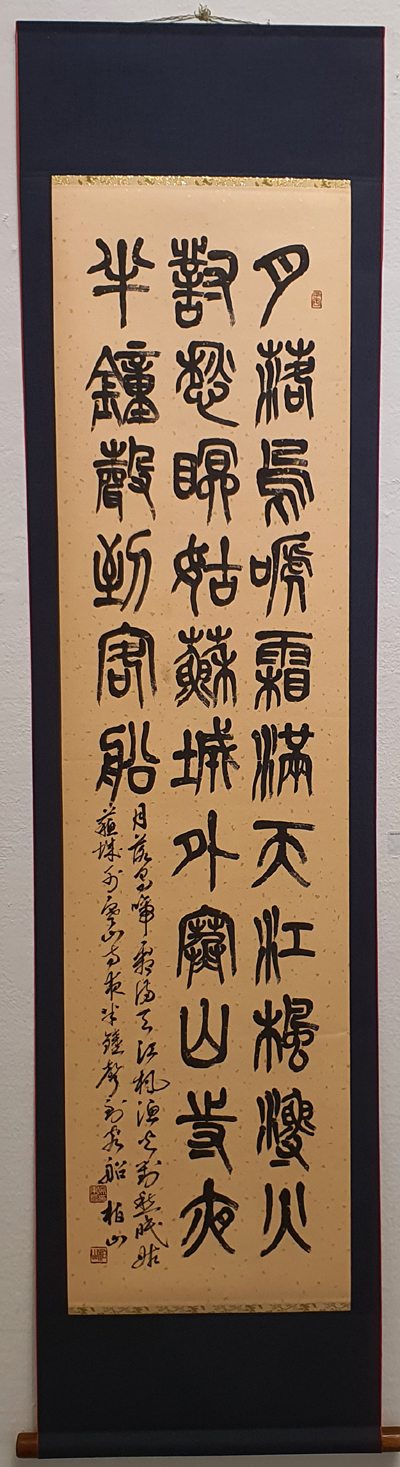 月落烏啼霜滿天江楓漁火
對愁眠姑蘇城外寒山寺夜
半鐘聲到客船
月落烏啼霜滿天江楓漁火對愁眠姑
蘇城外寒山寺夜半鐘聲到客船 柏山